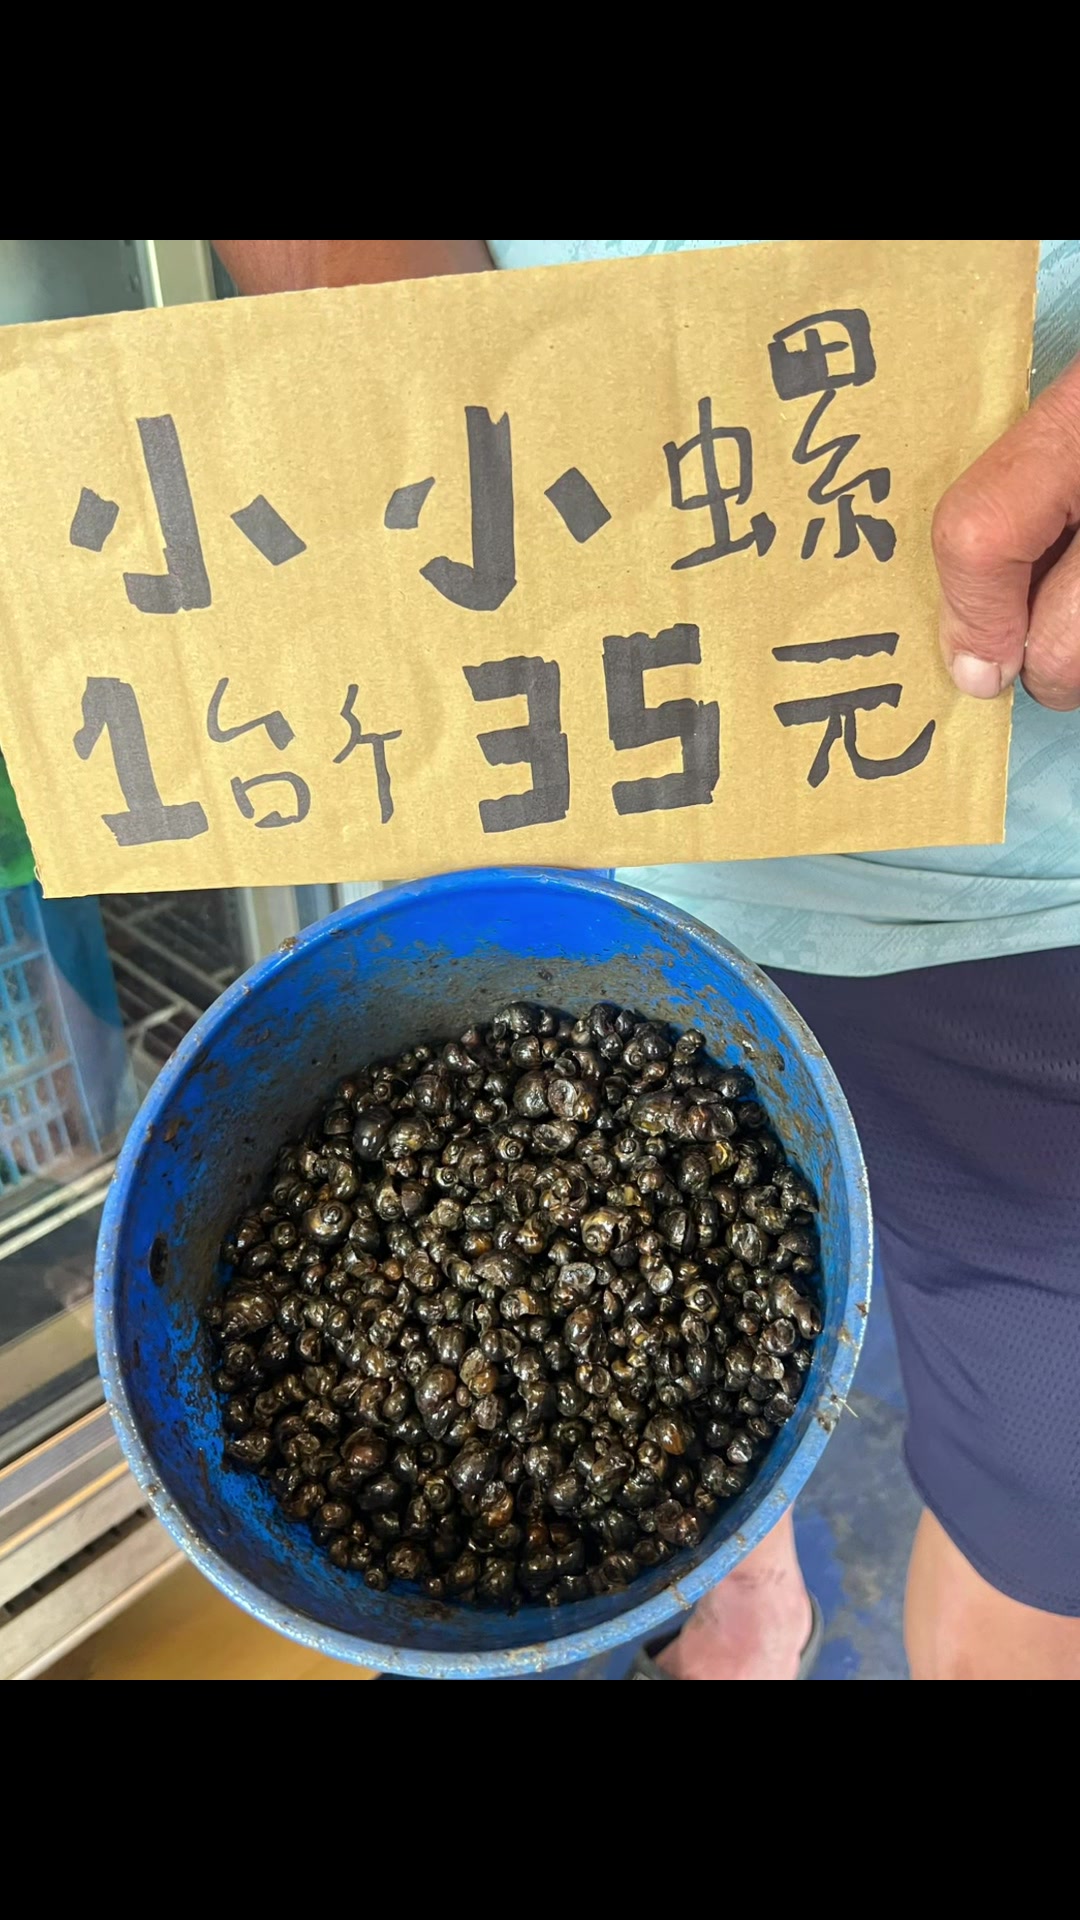 小小螺
1台斤35元